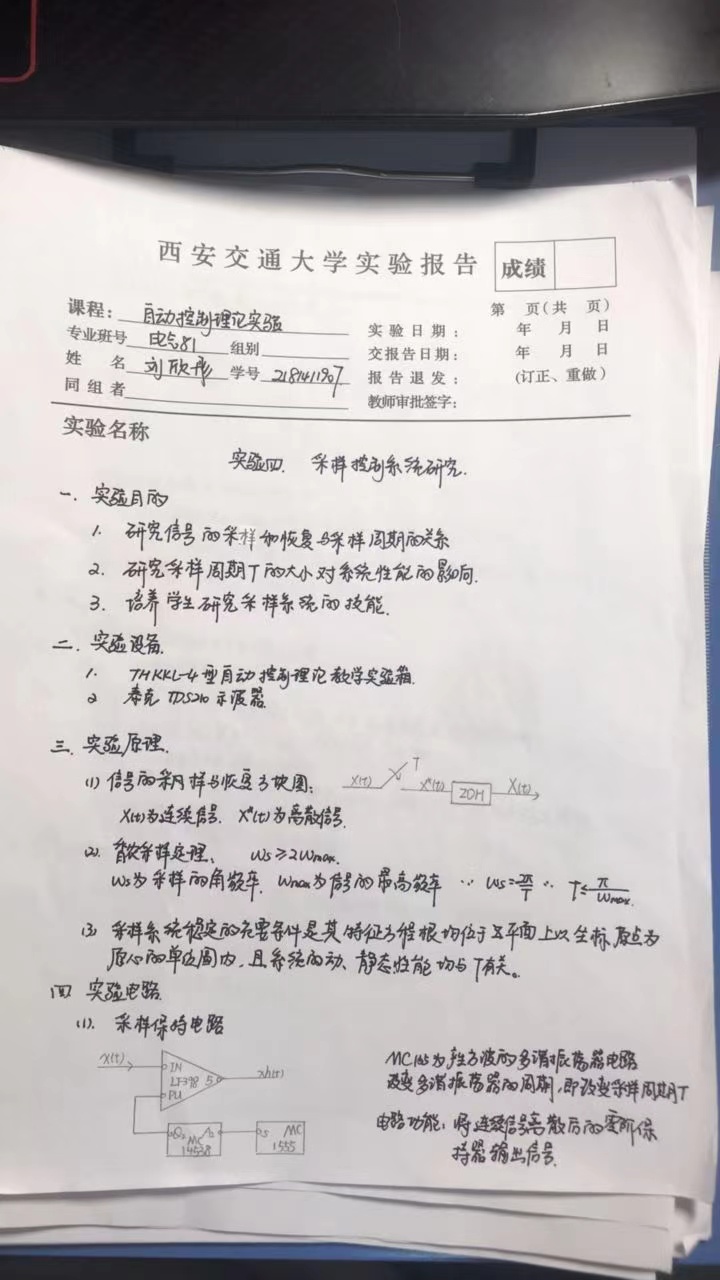 西安交通大学实验报告
成绩
课程：自动控制理论实验
第 页（共 页）
专业班号 电气81 组别
实验日期： 年 月 日
姓 名 刘欣彤 学号 2181411907
交报告日期： 年 月 日
同组者
报告退发： （订正、重做）
教师审批签字：
实验名称
实验四. 采样控制系统研究.
一. 实验目的
1. 研究信号的采样和恢复与采样周期的关系
2. 研究采样周期T的大小对系统性能的影响.
3. 培养学生研究采样系统的技能.
二. 实验设备.
1. THKKL-4型自动控制理论教学实验箱.
2 泰克 TDS210 示波器.
三. 实验原理.
(1) 信号的采样与恢复方块图：
X(t) T X*(t) ZOH X(t)
X(t)为连续信号. X*(t)为离散信号.
(2). 香农采样定理. ωs≥2ωmax.
ωs为采样的角频率. ωmax为信号的最高频率 ∵ ωs=2π/T ∴ T≤π/ωmax.
(3) 采样系统稳定的充要条件是其特征方程根均位于Z平面上以坐标原点为
原心的单位圆内，且系统的动、静态性能均与T有关。
四. 实验电路.
(1). 采样保持电路
x(t) IN LF398 5 PU xh(t)
Q2 MC 14538
5 MC 1555
为产生方波的多谐振荡器电路
改变多谐振荡器的周期，即改变采样周期T
电路功能：将连续信号离散后的零阶保
持器输出信号.